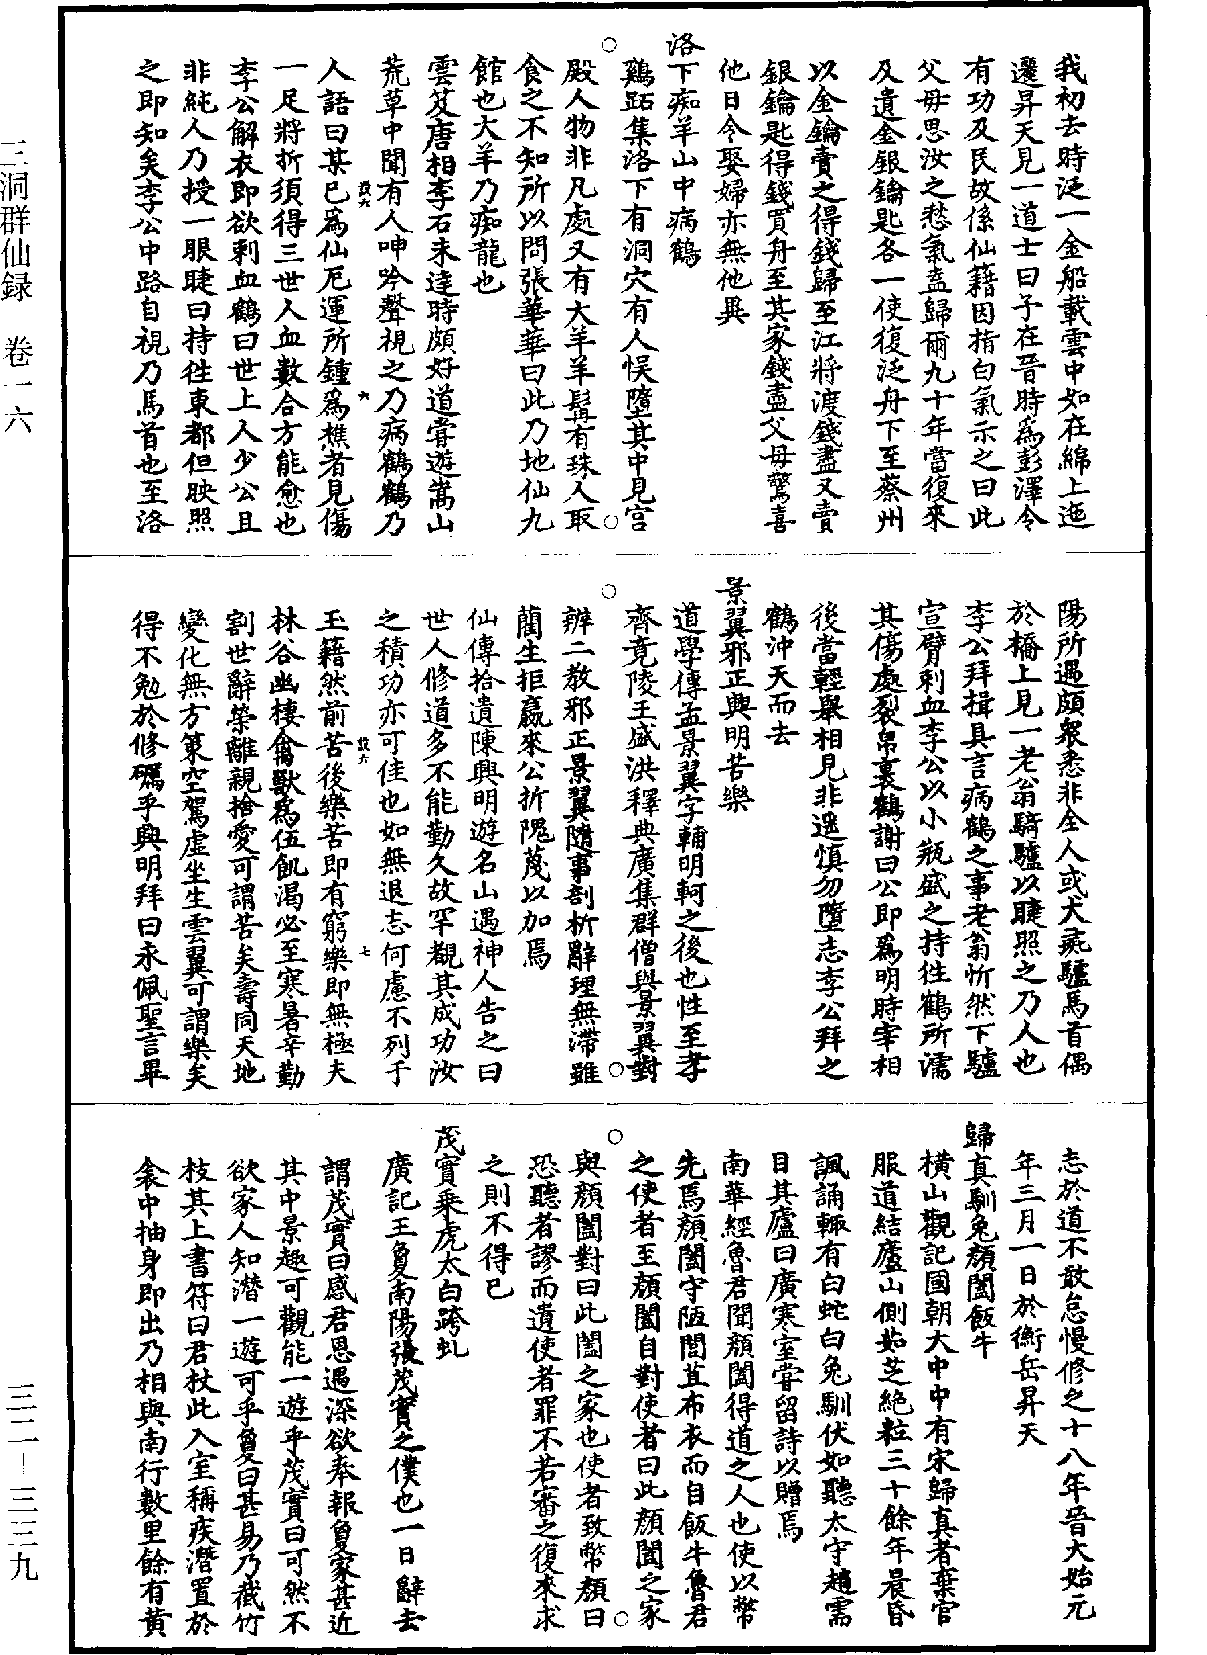 我初去時泛一金船載雲中如在綿上迤
邐昇天見一道士曰子在晉時爲彭澤令
有功及民故係仙籍因指白氣示之曰此
父母思汝之愁氣盍歸爾九十年當復來
及遺金銀鑰匙各一使復泛舟下至蔡州
以金鑰賣之得錢歸至江將渡錢盡又賣
銀鑰匙得錢買舟至其家錢盡父母驚喜
他日令娶婦亦無他異
洛下痴羊山中病鶴
鷄跖集洛下有洞穴有人悞墮其中見宫
殿人物非凡處又有大羊羊髯有珠人取
食之不知所以問張華華曰此乃地仙九
館也大羊乃痴龍也
雲笈唐相李石未達時頗好道嘗遊嵩山
荒草中聞有人呻吟聲視之乃病鶴鶴乃
人語曰某已爲仙厄運所鍾爲樵者見傷
一足將折須得三世人血數合方能愈也
李公解衣即欲刺血鶴曰世上人少公且
非純人乃授一眼睫曰持徃東都但映照
之即知矣李公中路自視乃馬首也至洛
陽所遇頗衆悉非全人或犬彘驢馬首偶
於橋上見一老翁騎驢以睫照之乃人也
李公拜揖具言病鶴之事老翁忻然下驢
宣臂刺血李公以小瓶盛之持徃鶴所濡
其傷處裂帛裹鶴謝曰公即爲明時宰相
後當輕舉相見非遥慎勿墮志李公拜之
鶴沖天而去
景翼邪正興明苦樂
道學傳孟景翼字輔明軻之後也性至孝
齊竟陵王盛洪釋典廣集群僧與景翼對
辨二教邪正景翼隨事剖析辭理無滯雖
藺生拒嬴來公折隗蔑以加焉
仙傳拾遺陳興明遊名山遇神人告之曰
世人修道多不能勤久故罕覩其成功汝
之積功亦可佳也如無退志何慮不列于
玉籍然前苦後樂苦即有窮樂即無極夫
林谷幽棲禽獸爲伍飢渴必至寒暑辛勤
割世辭榮離親捨愛可謂苦矣壽同天地
變化無方策空駕虚坐生雲翼可謂樂矣
得不勉於修礪乎興明拜曰永佩聖言畢
志於道不敢怠慢修之十八年晉大始元
年三月一日於衡岳昇天
歸真馴兔顔闔飯牛
橫山觀記國朝大中中有宋歸真者棄官
服道結廬山側茹芝絶粒三十餘年晨昏
諷誦輙有白蛇白兔馴伏如聽太守趙需
目其廬曰廣寒室嘗留詩以贈焉
南華經魯君聞顔闔得道之人也使以幣
先焉顔闔守陋閭苴布衣而自飯牛魯君
之使者至顔闔自對使者曰此顔闔之家
與顔闔對曰此闔之家也使者致幣顔曰
恐聽者謬而遺使者罪不若審之復來求
之則不得已
茂實乗虎太白跨虬
廣記王敻南陽張茂實之僕也一日辭去
謂茂實曰感君恩遇深欲奉報敻家甚近
其中景趣可觀能一遊乎茂實曰可然不
欲家人知潛一遊可乎敻曰甚易乃截竹
枝其上書符曰君杖此入室稱疾潛置於
衾中抽身即出乃相與南行數里餘有黄
三洞群仙録 卷一六
三二—三三九
設六
六
設六
七